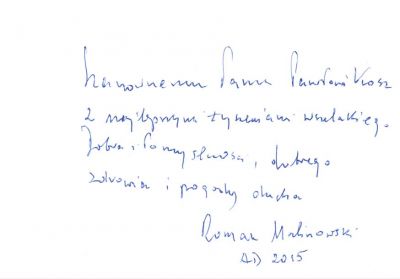 Szanownemu Panu Pawłowi Kłosz
z najlepszymi życzeniami wszelakiego
Dobra i Pomyślności, dobrego
zdrowia i pogody ducha
Roman Malinowski
AD 2015